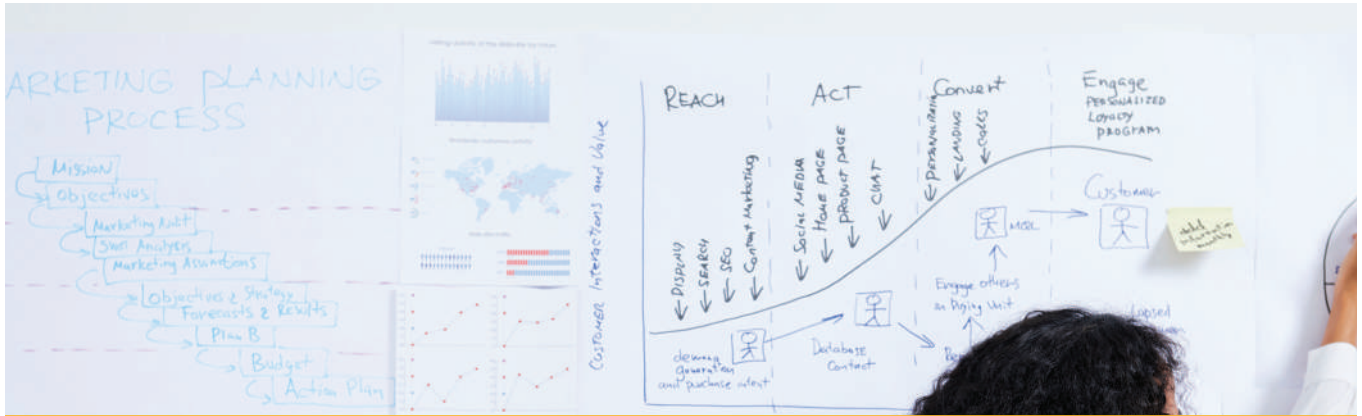 ARKETING PLANNING
PROCESS
Mission
Objectives
Marketing Audit
Swot Analysis
Marketing Assumptions
Objectives & Strategy
Forecasts & Results
Plan B
Budget
Action Plan
Customer Interactions and Value
REACH
DISPLAY
SEARCH
SEO
Content Marketing
demand
generation
and purchase intent
ACT
SOCIAL MEDIA
HOME PAGE
PRODUCT PAGE
CHAT
DATABASE
Contact
Convert
LANDING
Engage others
in Buying Unit
MQL
Engage
PERSONALIZED
LOYALTY
PROGRAM
Customer
Lapsed